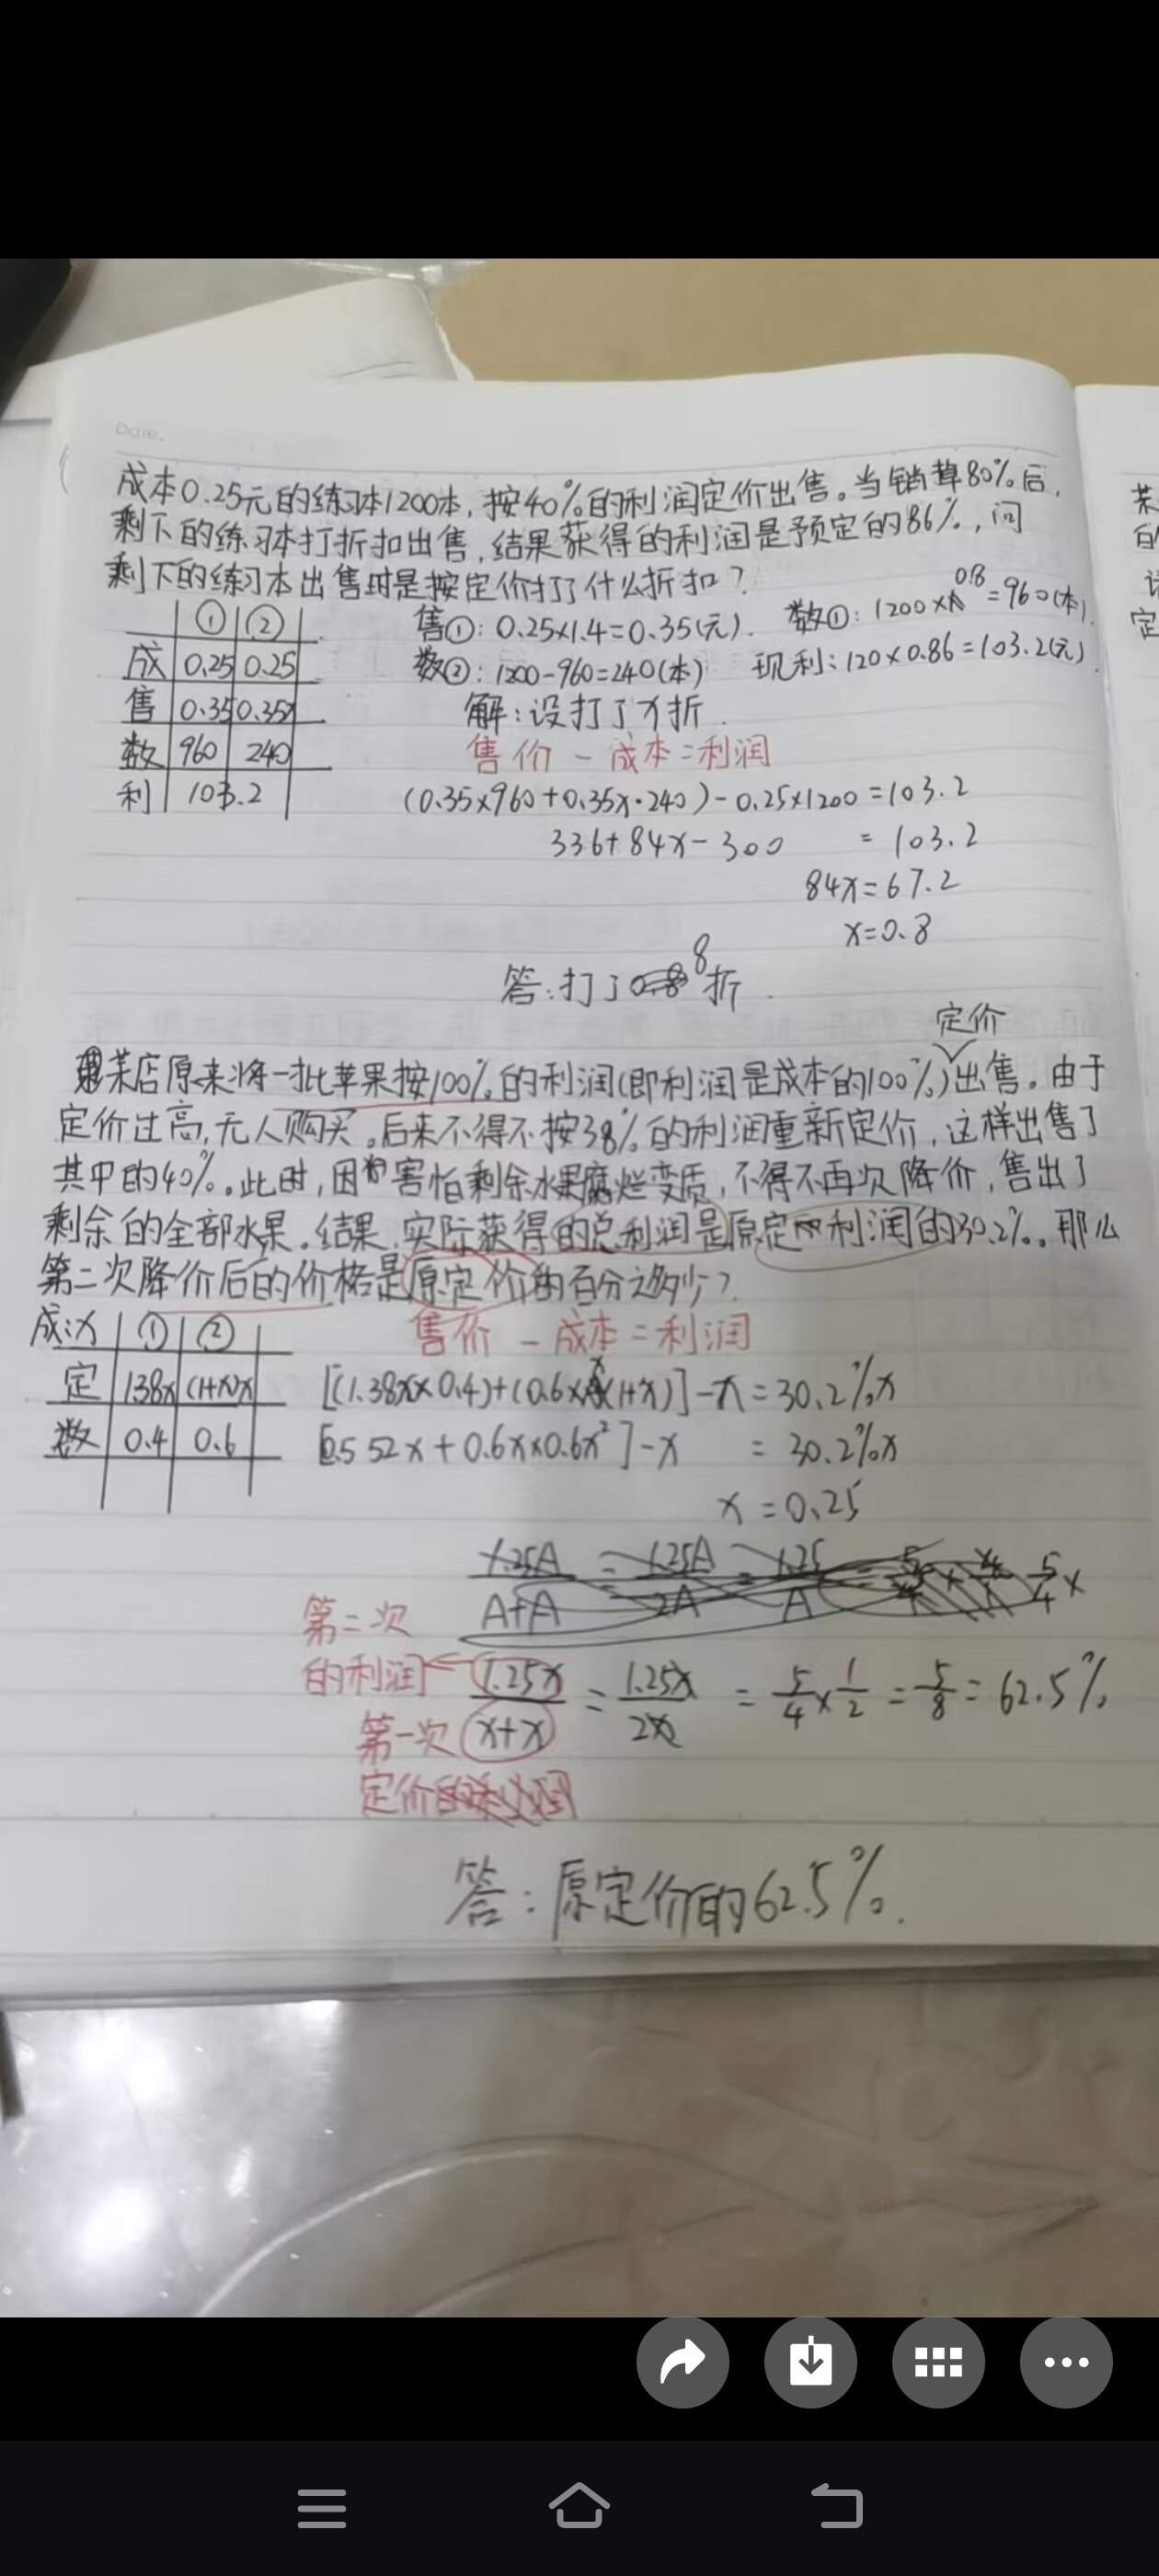 Date.
成本0.25元的练习本1200本，按40%的利润定价出售。当销掉80%后，
剩下的练习本打折扣出售，结果获得的利润是预定的86%，问
剩下的练习本出售时是按定价打了什么折扣？
① ②
售①：0.25×1.4=0.35(元). 数①：1200×0.8=960(本).
成 0.25 0.25
数②：1200-960=240(本) 现利：120×0.86=103.2(元).
售 0.35 0.35x
解：设打了x折.
数 960 240
售价 - 成本=利润
利 103.2
(0.35×960+0.35x·240)-0.25×1200=103.2
336+84x-300 = 103.2
84x=67.2
x=0.8
答：打了8折.
定价
某店原来将一批苹果按100%的利润(即利润是成本的100%)出售。由于
定价过高，无人购买。后来不得不按38%的利润重新定价，这样出售了
其中的40%。此时，因害怕剩余水果腐烂变质，不得不再次降价，售出了
剩余的全部水果。结果，实际获得的总利润是原定利润的30.2%。那么
第二次降价后的价格是原定价的百分之多少？
成:x ① ②
售价 - 成本=利润
定 1.38x (1+x)x
[(1.38x×0.4)+(0.6×x(1+x)]-x=30.2%x
数 0.4 0.6
[0.552x+0.6x×0.6x²]-x = 30.2%x
x=0.25
第二次
的利润
1.25x/x+x = 1.25x/2x = 5/4×1/2=5/8=62.5%
第一次
定价
答：原定价的62.5%.